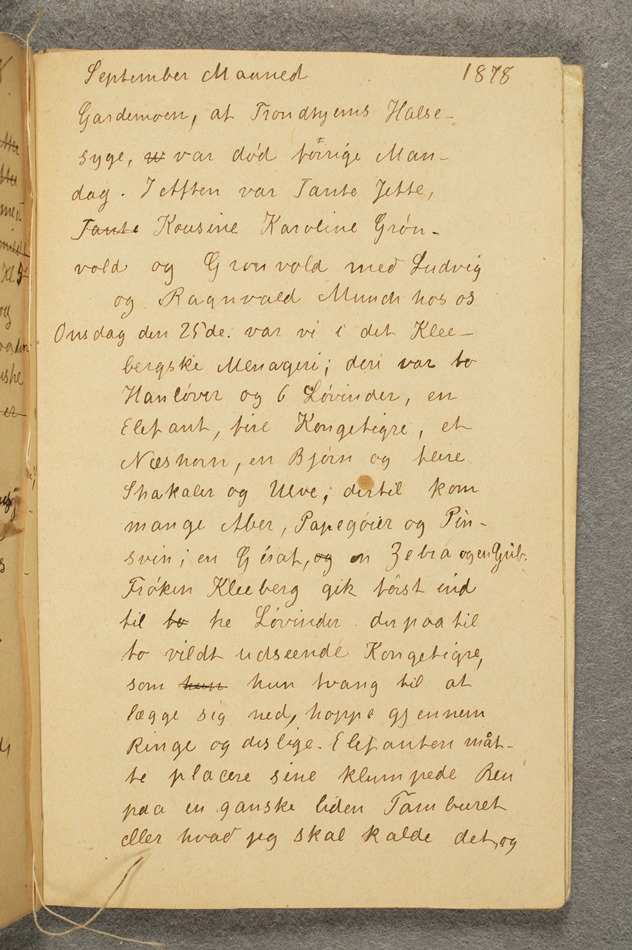 September Maaned 1878
Gardemoen, at Trondhjems Halse-
syge, w var død forrige Man-
dag. I Aften var Tante Jette,
Tante Kousine Karoline Grøn-
vold og Grønvold med Ludvig
og Ragnvald Munch hos os
Onsdag den 25de. var vi i det Klee-
bergske Menageri; deri var to
Hanløver og 6 Løvinder, en
Elefant, fire Kongetigre, et
Næshorn, en Bjørn og flere
Shakaler og Ulve; dertil kom
mange Aber, Papegøier og Pin-
svin; en Gérat, og en Zebra og en Grib.
Frøken Kleeberg gik først ind
til to tre Løvinder derpaa til
to vildt udseende Kongetigre,
som hun hun tvang til at
lægge sig ned, hoppe gjennem
Ringe og deslige. Elefanten måt-
te placere sine klumpede Ben
paa en ganske liden Tamburet
eller hvad jeg skal kalde det, og